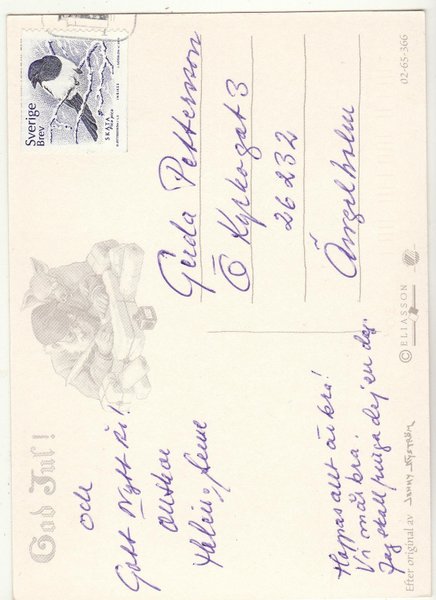 God Jul!
och
Gott Nytt År!
önskar
Helein, Arne
Hoppas allt är bra!
Vi mår bra.
Jag skall ringa dej en dag.
Sverige
Brev
SKATA
Pica pica
INRIKES
Gerda Pettersson
Ö Kyrkogat 3
26232
Ängelholm
02-65-366
© ELIASSON
Efter original av JENNY NYSTRÖM